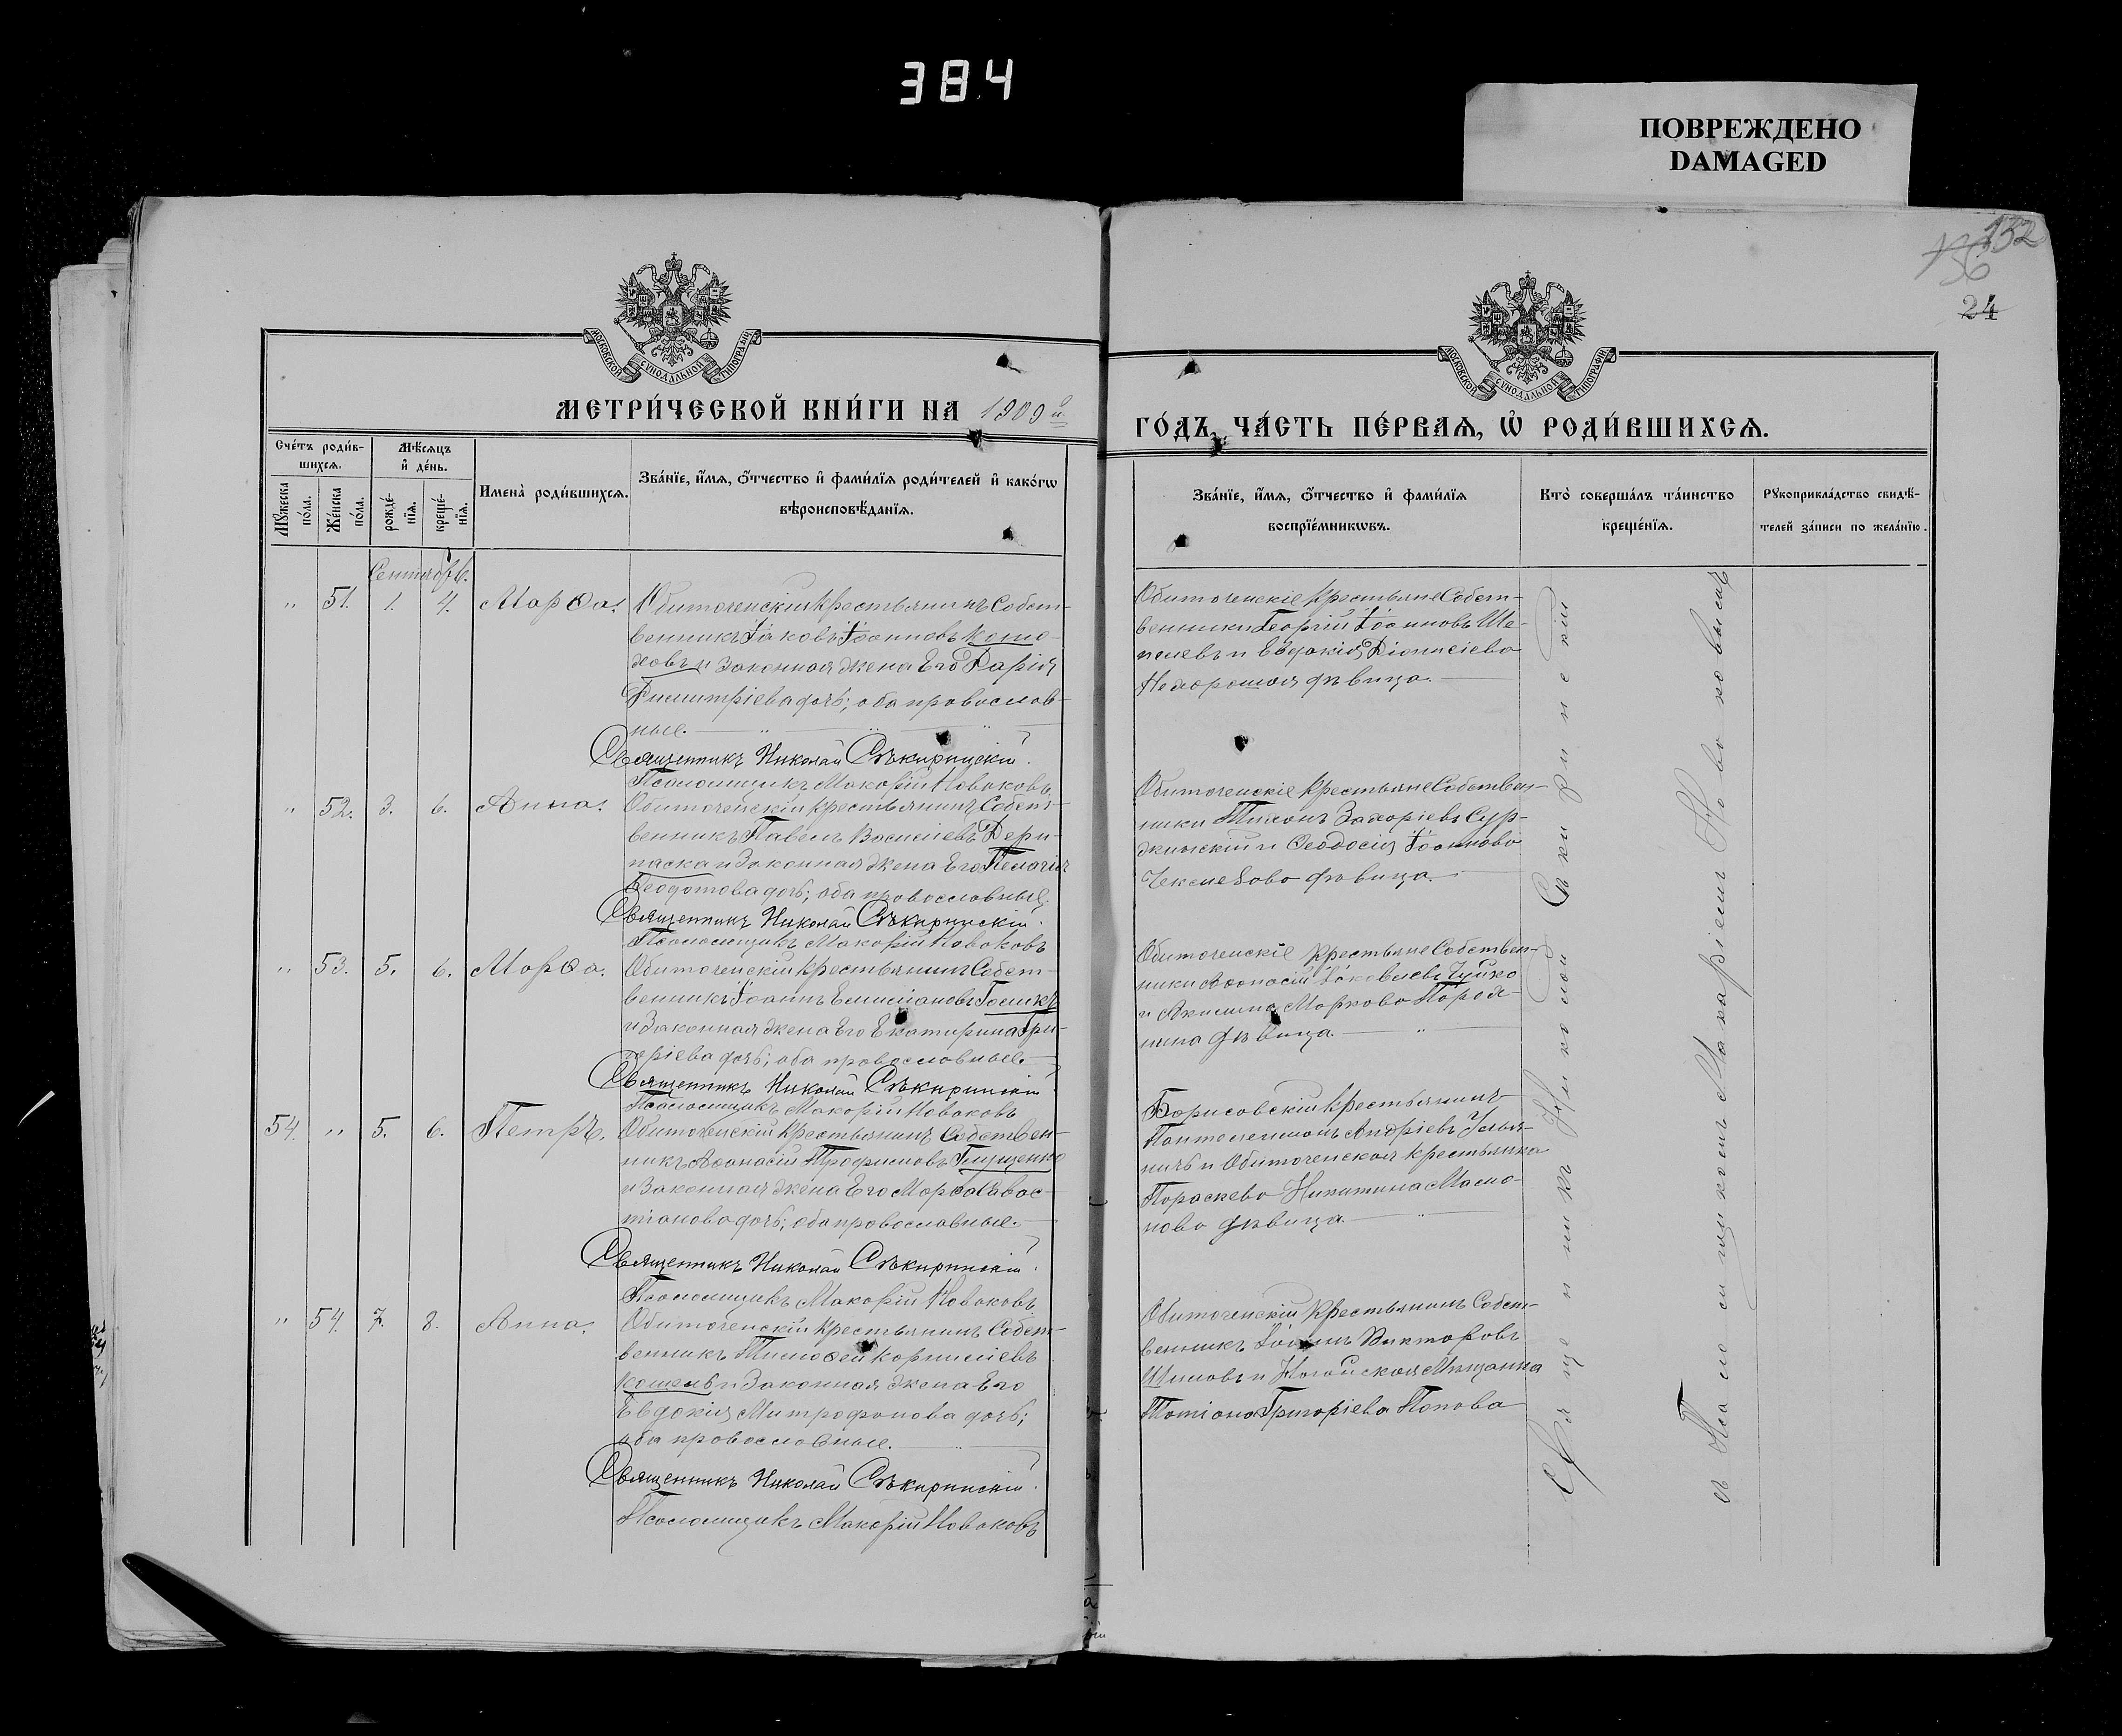 384
ПОВРЕЖДЕНО
DAMAGED
132
136
24
МОСКОВСКОЙ СѴНОДАЛЬНОЙ ТИПОГРАФІИ
МОСКОВСКОЙ СѴНОДАЛЬНОЙ ТИПОГРАФІИ
МЕТРИ́ЧЕСКОЙ КНИ́ГИ НА 1909 й
ГО́ДЪ, ЧА́СТЬ ПЕ́РВАЯ, Ѡ҆ РОДИ́ВШИХСЯ.
Сче́тъ роди́в-
шихся.
Мꙋ́жеска по́ла.
Же́нска по́ла.
Мѣ́сяцъ
и҆ де́нь.
рожде́-
нїя.
креще́-
нїя.
Имена̀ роди́вшихся.
Зва́нїе, и҆́мя, ѻ҆́тчество и҆ фами́лїя роди́телей и҆ како́гѡ
вѣроисповѣ́данїя.
Зва́нїе, и҆́мя, ѻ҆́тчество и҆ фами́лїя
воспрїе́мникѡвъ.
Кто̀ соверша́лъ та́инство
креще́нїя.
Рꙋкоприкла́дство свидѣ́-
телей за́писи по жела́нїю.
Сентябрь.
" 51. 1. 4. Марѳа.
Обиточенскій крестьянинъ Собст-
венникъ Іаковъ Іоанновъ
и законная жена Его Дарія
Димитріева дочь; оба православ-
ные.
Священникъ Николай Сѣкиринскій.
Псаломщикъ Макарій Новаковъ
Обиточенскіе крестьяне Собст-
венники Георгій Іоанновъ Ше-
пелевъ и Евдокія Діонисіева
Нехорошая дѣвица.
" 52. 3. 6. Анна.
Обиточенскій крестьянинъ Собст-
венникъ Павелъ Василіевъ Дери-
паска и Законная жена Его Пелагія
Ѳеодотова дочь; оба православные.
Священникъ Николай Сѣкиринскій.
Псаломщикъ Макарій Новаковъ
Обиточенскіе крестьяне Собствен-
ники Тихонъ Захаріевъ Сур-
жинскій и Ѳеодосія Іоаннова
дѣвица.
" 53. 5. 6. Марѳа.
Обиточенскій крестьянинъ Собст-
венникъ Іоаннъ Емиліановъ
и Законная жена Его Екатерина Гри-
горіева дочь; оба православные.
Священникъ Николай Сѣкиринскій
Псаломщикъ Макарій Новаковъ
Обиточенскіе крестьяне Собствен-
ники Аѳанасій Іаковлевъ Чуйко
и Акилина Маркова
дѣвица. "
54. " 5. 6. Петръ.
Обиточенскій крестьянинъ Собствен-
никъ Аѳанасій Трофимовъ Глущенко
и Законная жена Его Марѳа Савас-
тіанова дочь; оба православные.
Священникъ Николай Сѣкиринскій.
Псаломщикъ Макарій Новаковъ
Борисовскій крестьянинъ
Пантелеимонъ Андріевъ Улья-
ничъ и Обиточенская крестьянка
Параскева Никитина Мама-
нова дѣвица. "
" 54. 7. 8. Анна.
Обиточенскій крестьянинъ Собст-
венникъ Тимоѳей Корниліевъ
Кошель и Законная жена Его
Евдокія Митрофанова дочь;
оба православные. "
Священникъ Николай Сѣкиринскій.
Псаломщикъ Макарій Новаковъ
Обиточенскій крестьянинъ Собст-
венникъ Іоаннъ Викторовъ
Шиловъ и Ногайская Мѣщанка
Татіана Григоріева Попова
Священникъ Николай Сѣкиринскій
съ Псаломщикомъ Макаріемъ Новаковымъ